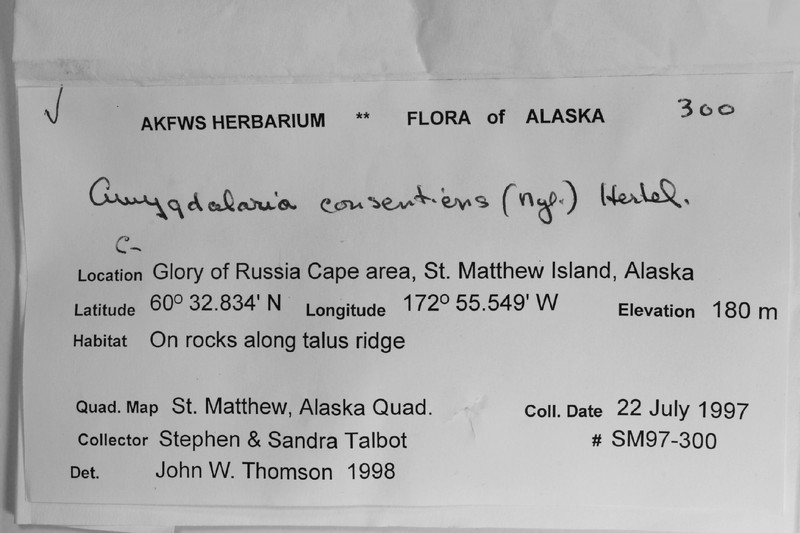 ✓ AKFWS HERBARIUM ** FLORA of ALASKA 300
Amygdalaria consentiens (Nyl.) Hertel.
C-
Location Glory of Russia Cape area, St. Matthew Island, Alaska
Latitude 60° 32.834' N Longitude 172° 55.549' W Elevation 180 m
Habitat On rocks along talus ridge
Quad. Map St. Matthew, Alaska Quad. Coll. Date 22 July 1997
Collector Stephen & Sandra Talbot # SM97-300
Det. John W. Thomson 1998